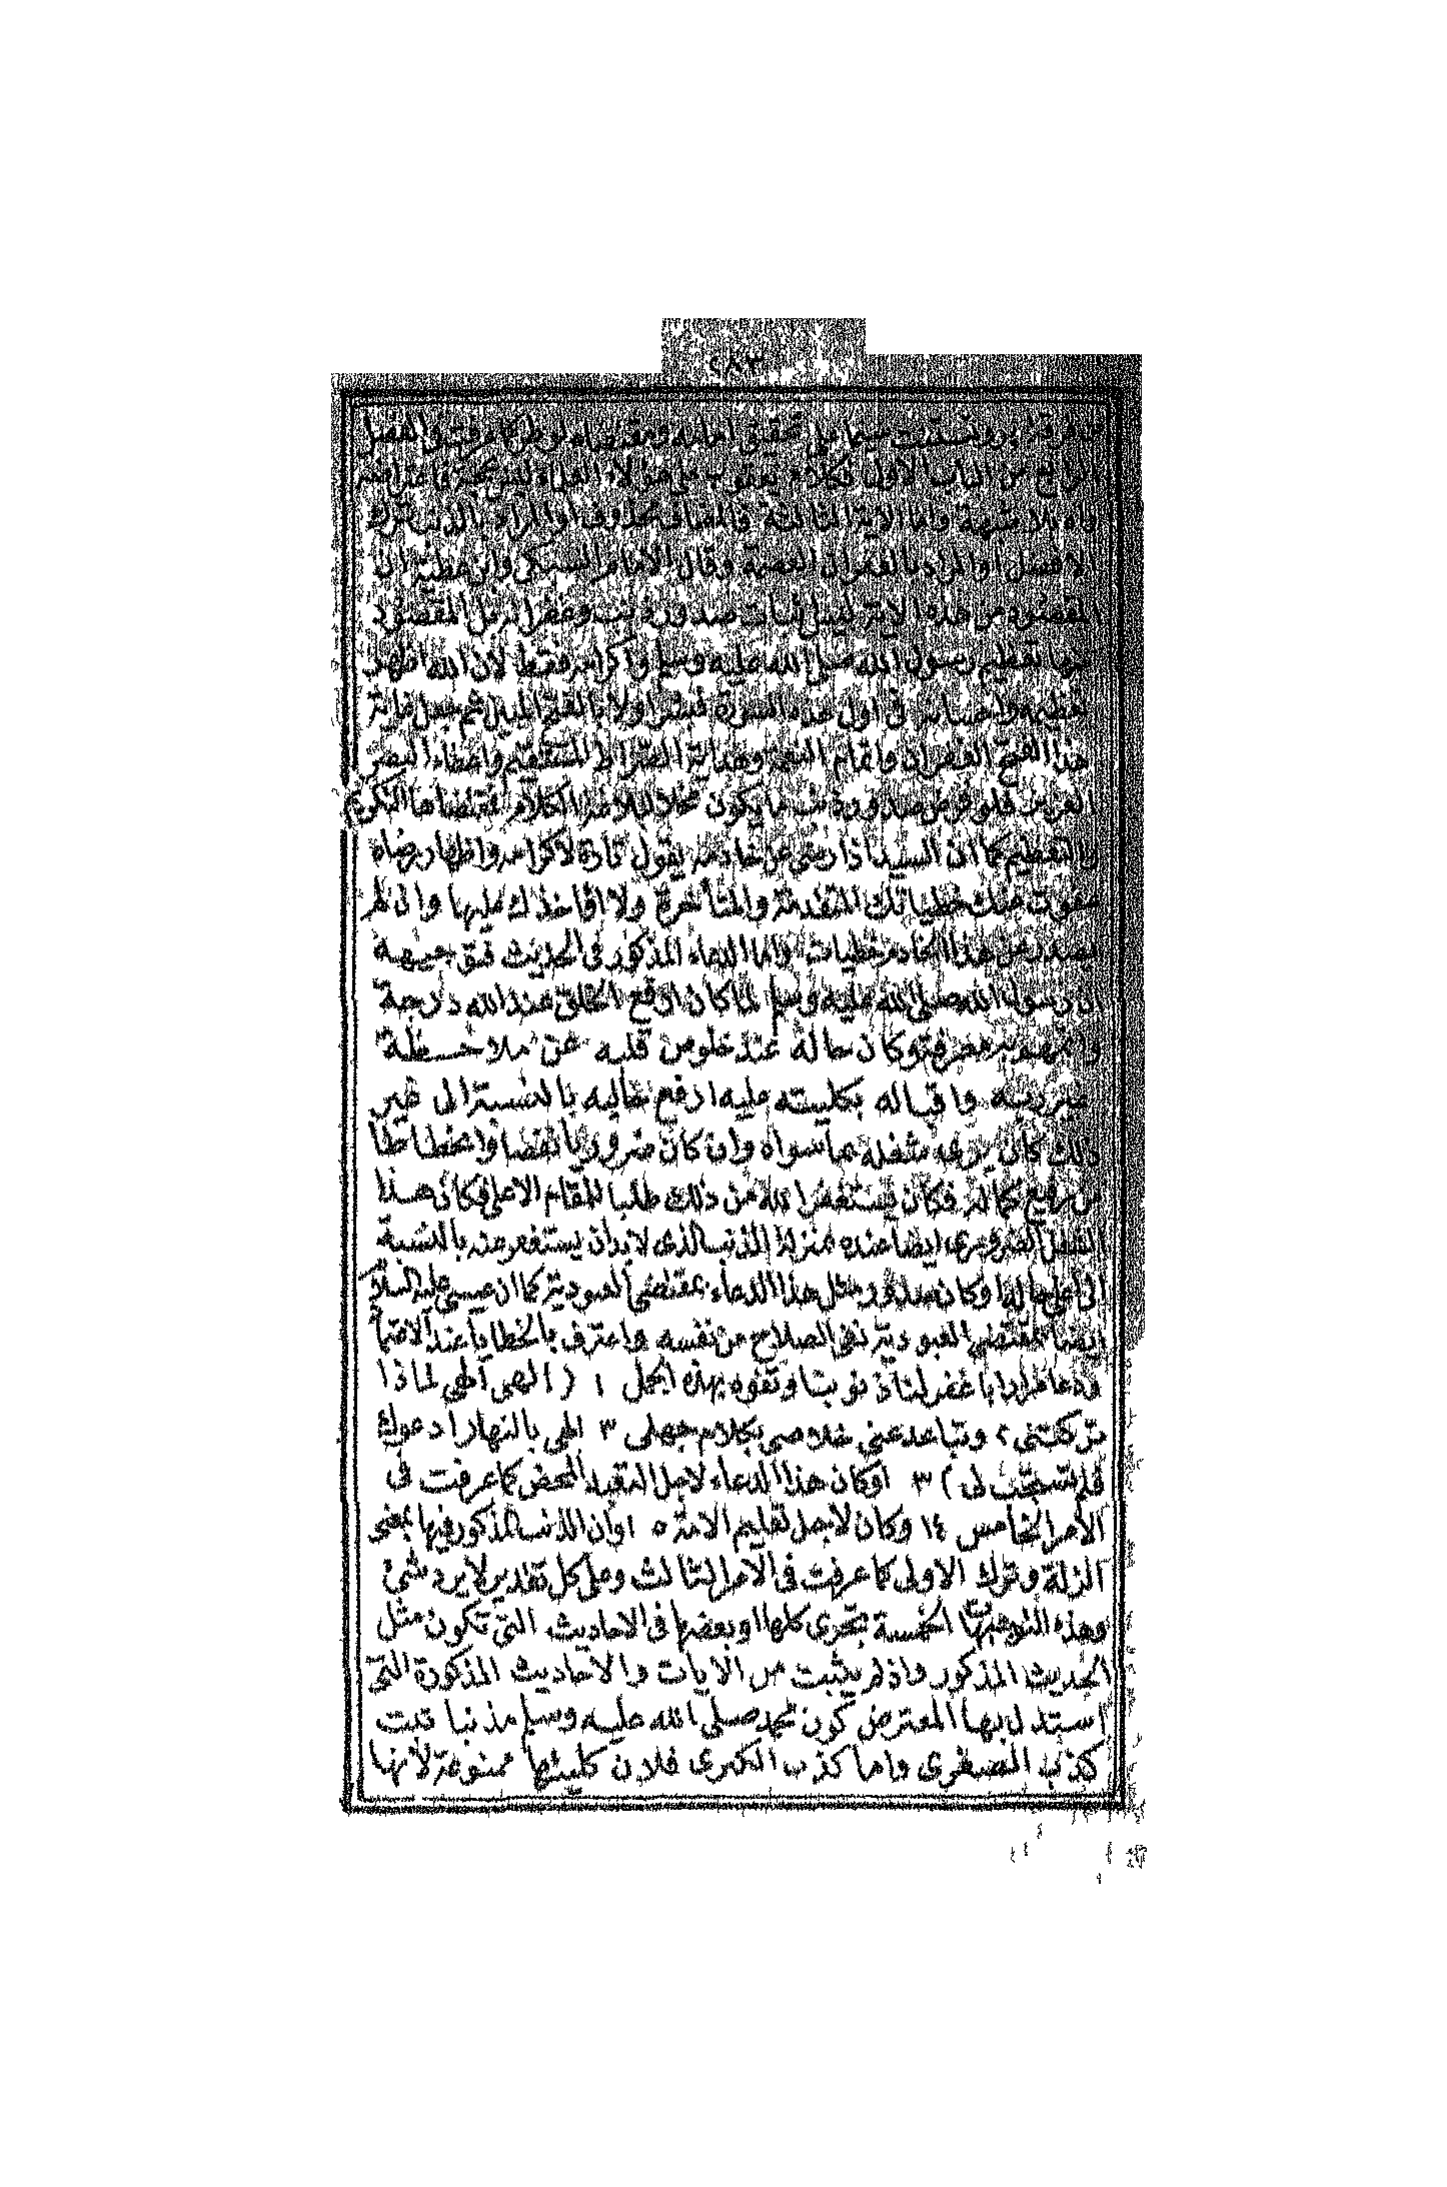 ٢٨٣
من فرقة پروتستنت سيما على تحقيق امامه ومقتضاه لوطر كما عرفت فى الفصل
الرابع من الباب الاول فكلام يعقوب على هؤلاء العلماء ليس بحجة فاعتراضهم
واه بلا شبهة واما الاية الثالثة فالمضاف محذوف او المراد بالذنب ترك
الافضل او المراد بالغفران العصمة وقال الامام السبكى وابن عطية ان
المقصود من هذه الاية ليس اثبات صدور ذنب وغفرانه بل المقصود
منها تعظيم رسول الله صلى الله عليه وسلم واكرامه فقط لان الله اظهر
عطيه واحسانه فى اول هذه السورة فبشر اولا بالفتح المبين ثم جعل غاية
هذا الفتح الغفران واتمام النعمة وهداية الصراط المستقيم واعطاء النصر
العزيز فلو فرض صدور ذنب ما يكون مخلا للامر الكلام فمقتضاها التكريم
والتعظيم كما ان السيد اذا رضى عن خادمه يقول تارة لاكرامه واظهار رضاه
عفوت عنك خطياتك المتقدمة والمتأخرة ولا اؤاخذك عليها وان لم
يصدر عن هذا الخادم خطيات واما الدعاء المذكور فى الحديث فتوجيهه
ان رسول الله صلى الله عليه وسلم لما كان ارفع الخلق عند الله درجة
واتمهم به معرفة وكان حاله عند خلوص قلبه عن ملاحظة
غير ربه واقباله بكليته عليه ارفع حاليه بالنسبة الى غير
ذلك كان يرى شغله بما سواه وان كان ضروريا نقصا وانحطاطا
من رفيع كماله فكان يستغفر الله من ذلك طلبا للمقام الاعلى فكان هذا
الشغل الضرورى ايضا عنده بمنزلة الذنب الذى لا بد ان يستغفر منه بالنسبة
الى اعلى حاله او كان صدور مثل هذا الدعاء بمقتضى العبودية كما ان عيسى عليه السلام
ايضا بمقتضى العبودية نفى الصلاح عن نفسه واعترف بالخطايا عند الاعتماد
ودعا مرارا با غفر لنا ذنوبنا وتفوه بهذه الجمل ١ (الهى الهى لماذا
تركتنى ٢ وتباعد عنى خلاصى بكلام جهلى ٣ الهى بالنهار ادعوك
فلم تستجب لى) ٣ اوكان هذا الدعاء لاجل التعبد المحض كما عرفت فى
الأمر الخامس ١٤ وكان لاجل تعليم الامة ٥ اوان الذنب المذكور فيها بمعنى
الزلة وترك الاولى كما عرفت فى الامر الثالث وعلى كل تقدير لا يرد شئ
وهذه التوجيهات الخمسة تجرى كلها او بعضها فى الاحاديث التى تكون مثل
الحديث المذكور واذ لم يثبت من الايات والاحاديث المذكورة التى
استدل بها المعترض كون محمد صلى الله عليه وسلم مذنبا ثبت
كذب الصغرى واما كذب الكبرى فلان كليتها ممنوعة لانها